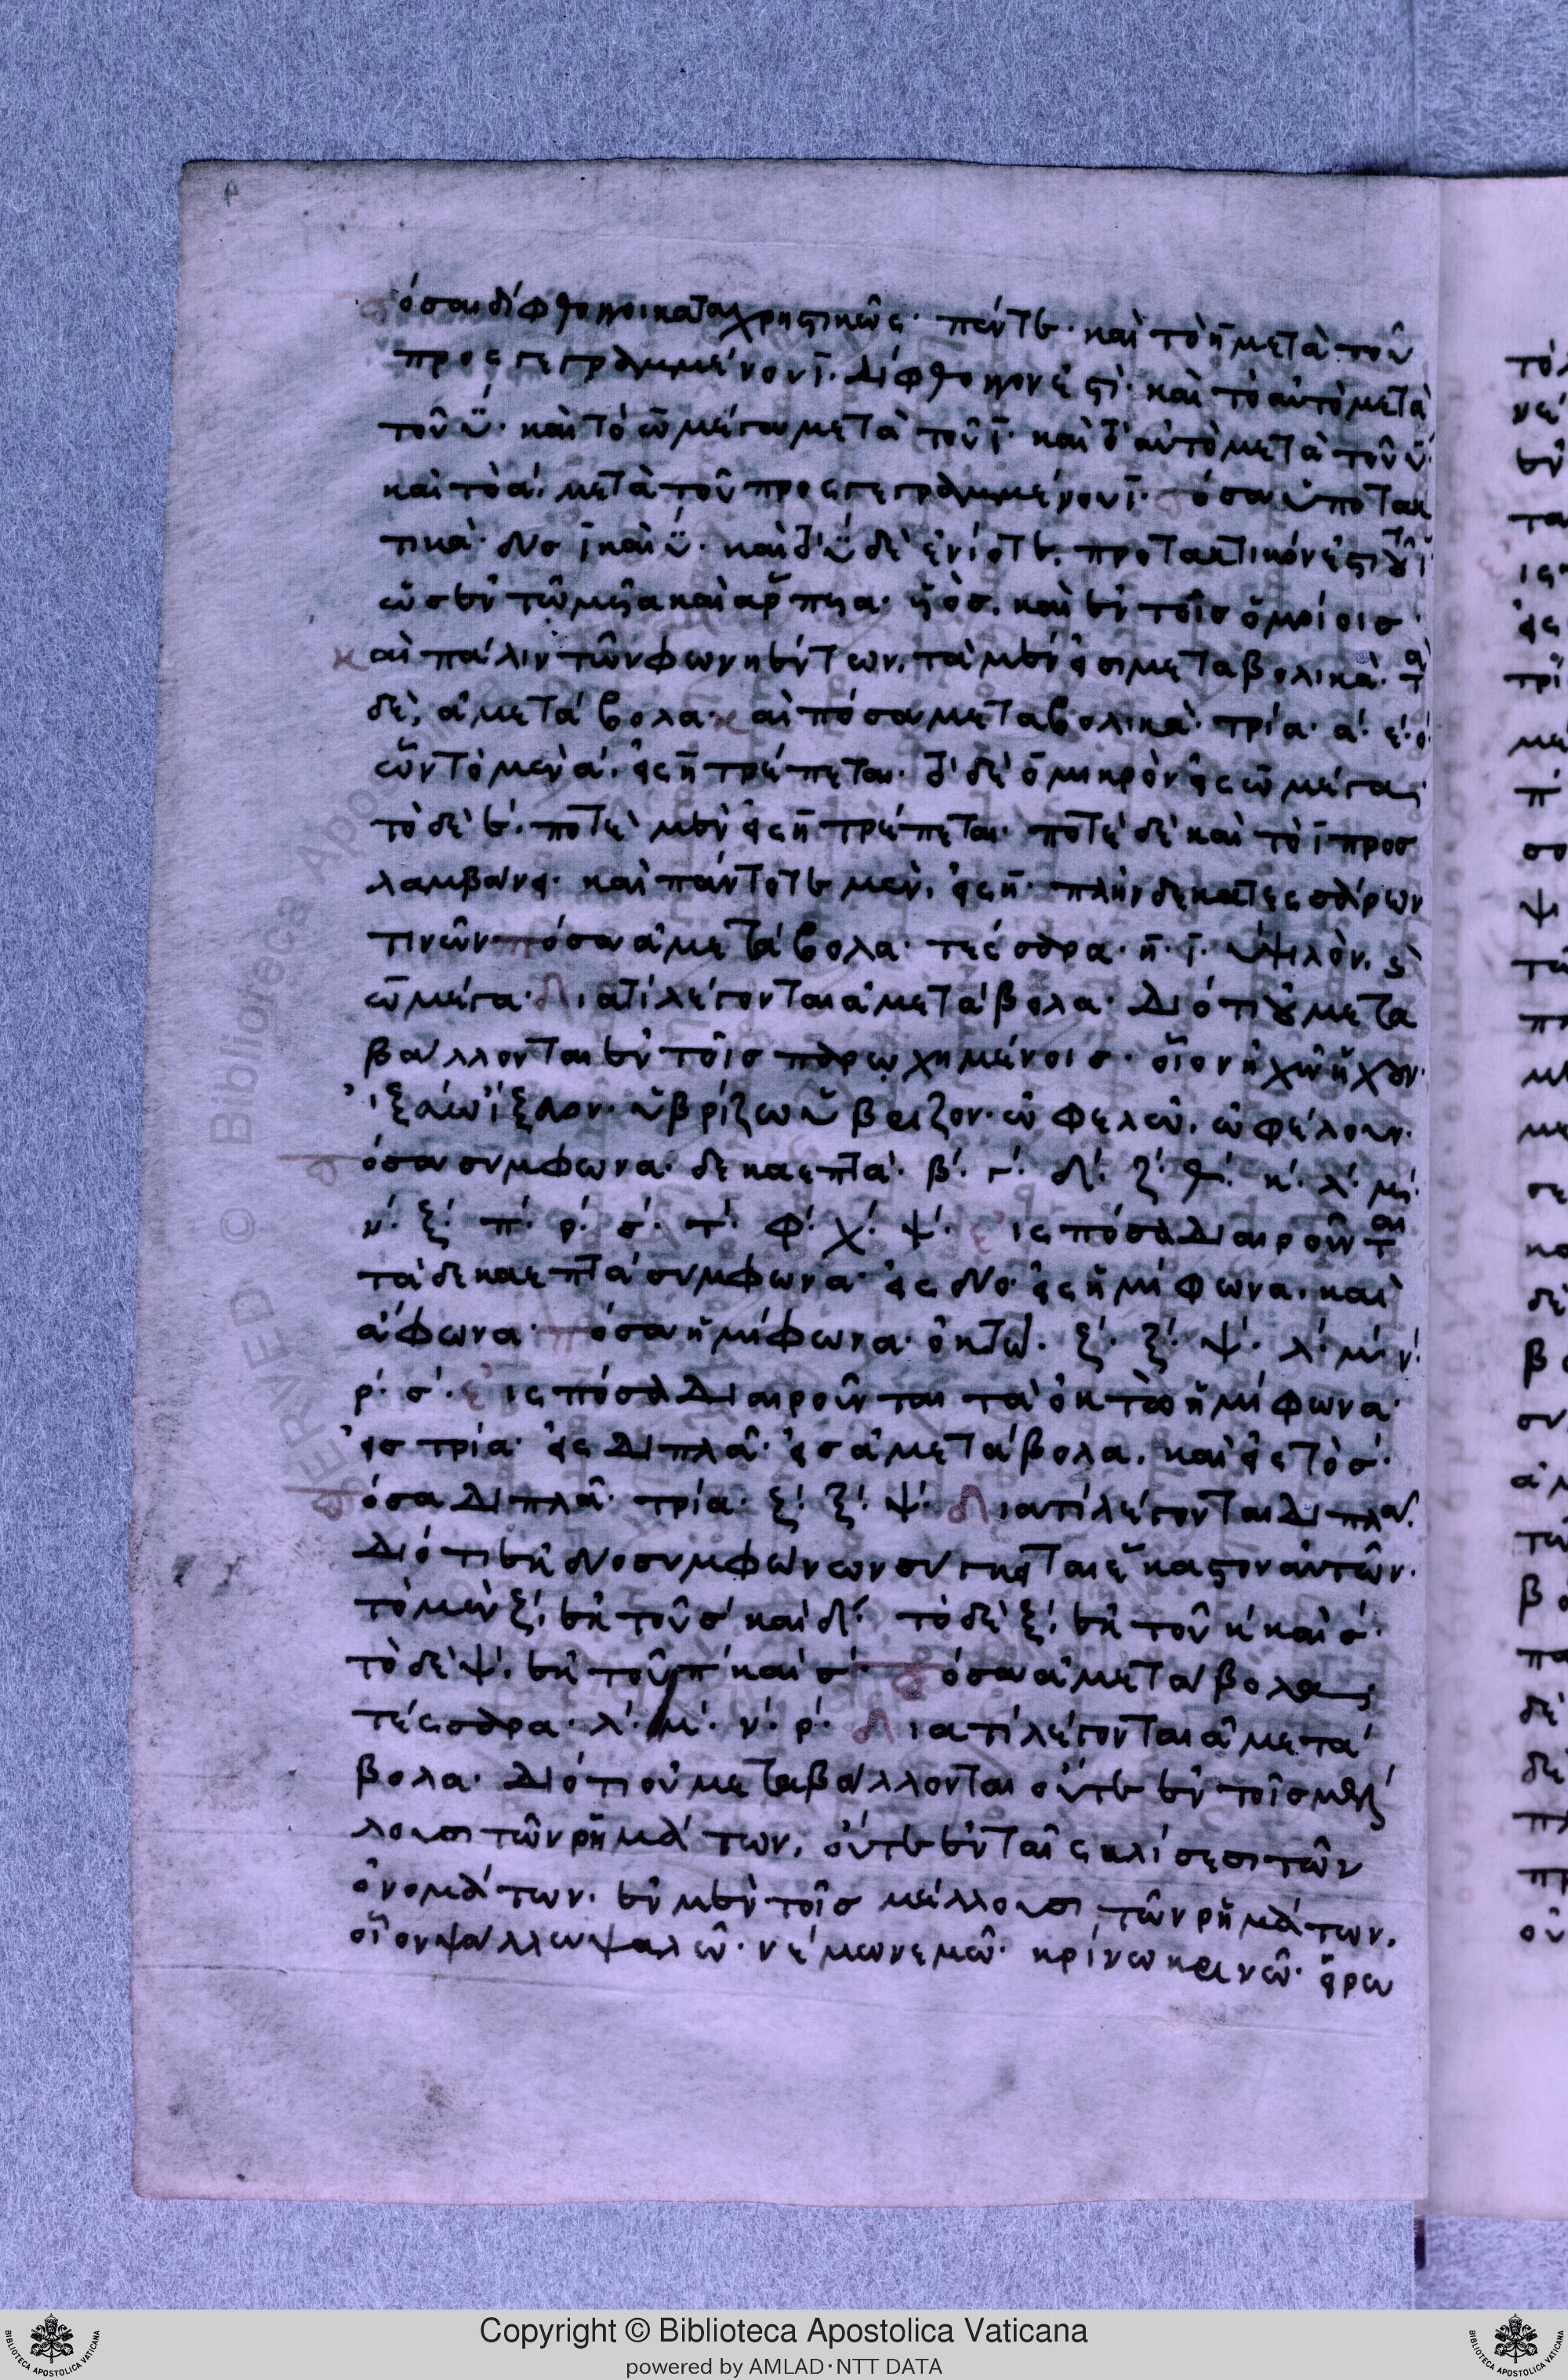 πόσαι δίφθογγοι καταχρηστικῶς· πέντε· καὶ τὸ η μετὰ τοῦ
προσγεγραμμένου ϊ· δίφθογγον ἐστί· καὶ τὸ αὐτὸ μετὰ
τοῦ ϋ· καὶ τὸ ω μέγα μετὰ τοῦ ϊ· καὶ τὸ αὐτὸ μετὰ τοῦ υ·
καὶ τὸ α, μετὰ τοῦ προσγεγραμμένου ϊ· πόσα ὑποτακ
τικὰ· δύο ϊ καὶ ϋ· καὶ τὸ ϋ δὲ ἐνίοτε, προτακτικόν ἐστι τοῦ ϊ
ὡς ἐν τῷ μυῖα καὶ ἅρπυια· υἱὸς, καὶ ἐν τοῖς ὁμοίοις
καὶ πάλιν τῶν φωνηέντων, τὰ μὲν εἰσι μεταβολικὰ· τὰ
δὲ, ἀμετάβολα· καὶ πόσα μεταβολικὰ· τρία· α· ε· ο·
ὧν τὸ μὲν α, εἰς η τρέπεται· τὸ δὲ ο μικρὸν εἰς ω μέγα·
τὸ δὲ ε, ποτὲ μὲν εἰς η τρέπεται· ποτὲ δὲ καὶ τὸ ϊ προσ
λαμβάνει· καὶ πάντοτε μὲν, εἰς η· πλὴν δεκατεσσάρων
τινῶν· πόσα ἀμετάβολα· τέσσαρα· η· ϊ· ὑψιλὸν, καὶ
ω μέγα· Διατί λέγονται ἀμετάβολα· Διότι οὐ μετα
βάλλονται ἐν τοῖς παρωχημένοις· οἷον ἠχῶ ἤχουν·
ἰξεύω ἴξευον· ὑβρίζω ὕβριζον· ὠφελῶ, ὠφέλουν·
πόσα σύμφωνα· δεκαεπτά· β· γ· δ· ζ· θ· κ· λ· μ·
ν· ξ· π· ρ· σ· τ· φ· χ· ψ· εἰς πόσα Διαιροῦνται
τὰ δεκαεπτὰ σύμφωνα· εἰς δύο· εἰς ἡμίφωνα, καὶ
ἄφωνα· πόσα ἡμίφωνα· ὀκτώ· ζ· ξ· ψ· λ· μ· ν·
ρ· σ· εἰς πόσα Διαιροῦνται τὰ ὀκτὼ ἡμίφωνα·
εἰς τρία· εἰς Διπλᾶ· εἰς ἀμετάβολα, καὶ εἰς τὸ σ·
πόσα Διπλᾶ· τρία· ζ· ξ· ψ· Διατί λέγονται Διπλᾶ·
Διότι ἐκ δύο συμφώνων σύγκειται ἕκαστον αὐτῶν·
τὸ μὲν ζ, ἐκ τοῦ σ καὶ δ· τὸ δὲ ξ, ἐκ τοῦ κ καὶ σ·
τὸ δὲ ψ, ἐκ τοῦ π καὶ σ· πόσα ἀμετάβολα·
τέσσαρα· λ· μ· ν· ρ· Διατί λέγονται ἀμετά
βολα· Διότι οὐ μεταβάλλονται οὔτε ἐν τοῖς μέλ
λουσι τῶν ῥημάτων, οὔτε ἐν ταῖς κλίσεσι τῶν
ὀνομάτων· ἐν μὲν τοῖς μέλλουσι τῶν ῥημάτων,
οἷον ψάλλω ψαλῶ· νέμω νεμῶ· κρίνω κρινῶ·
Copyright © Biblioteca Apostolica Vaticana
powered by AMLAD·NTT DATA